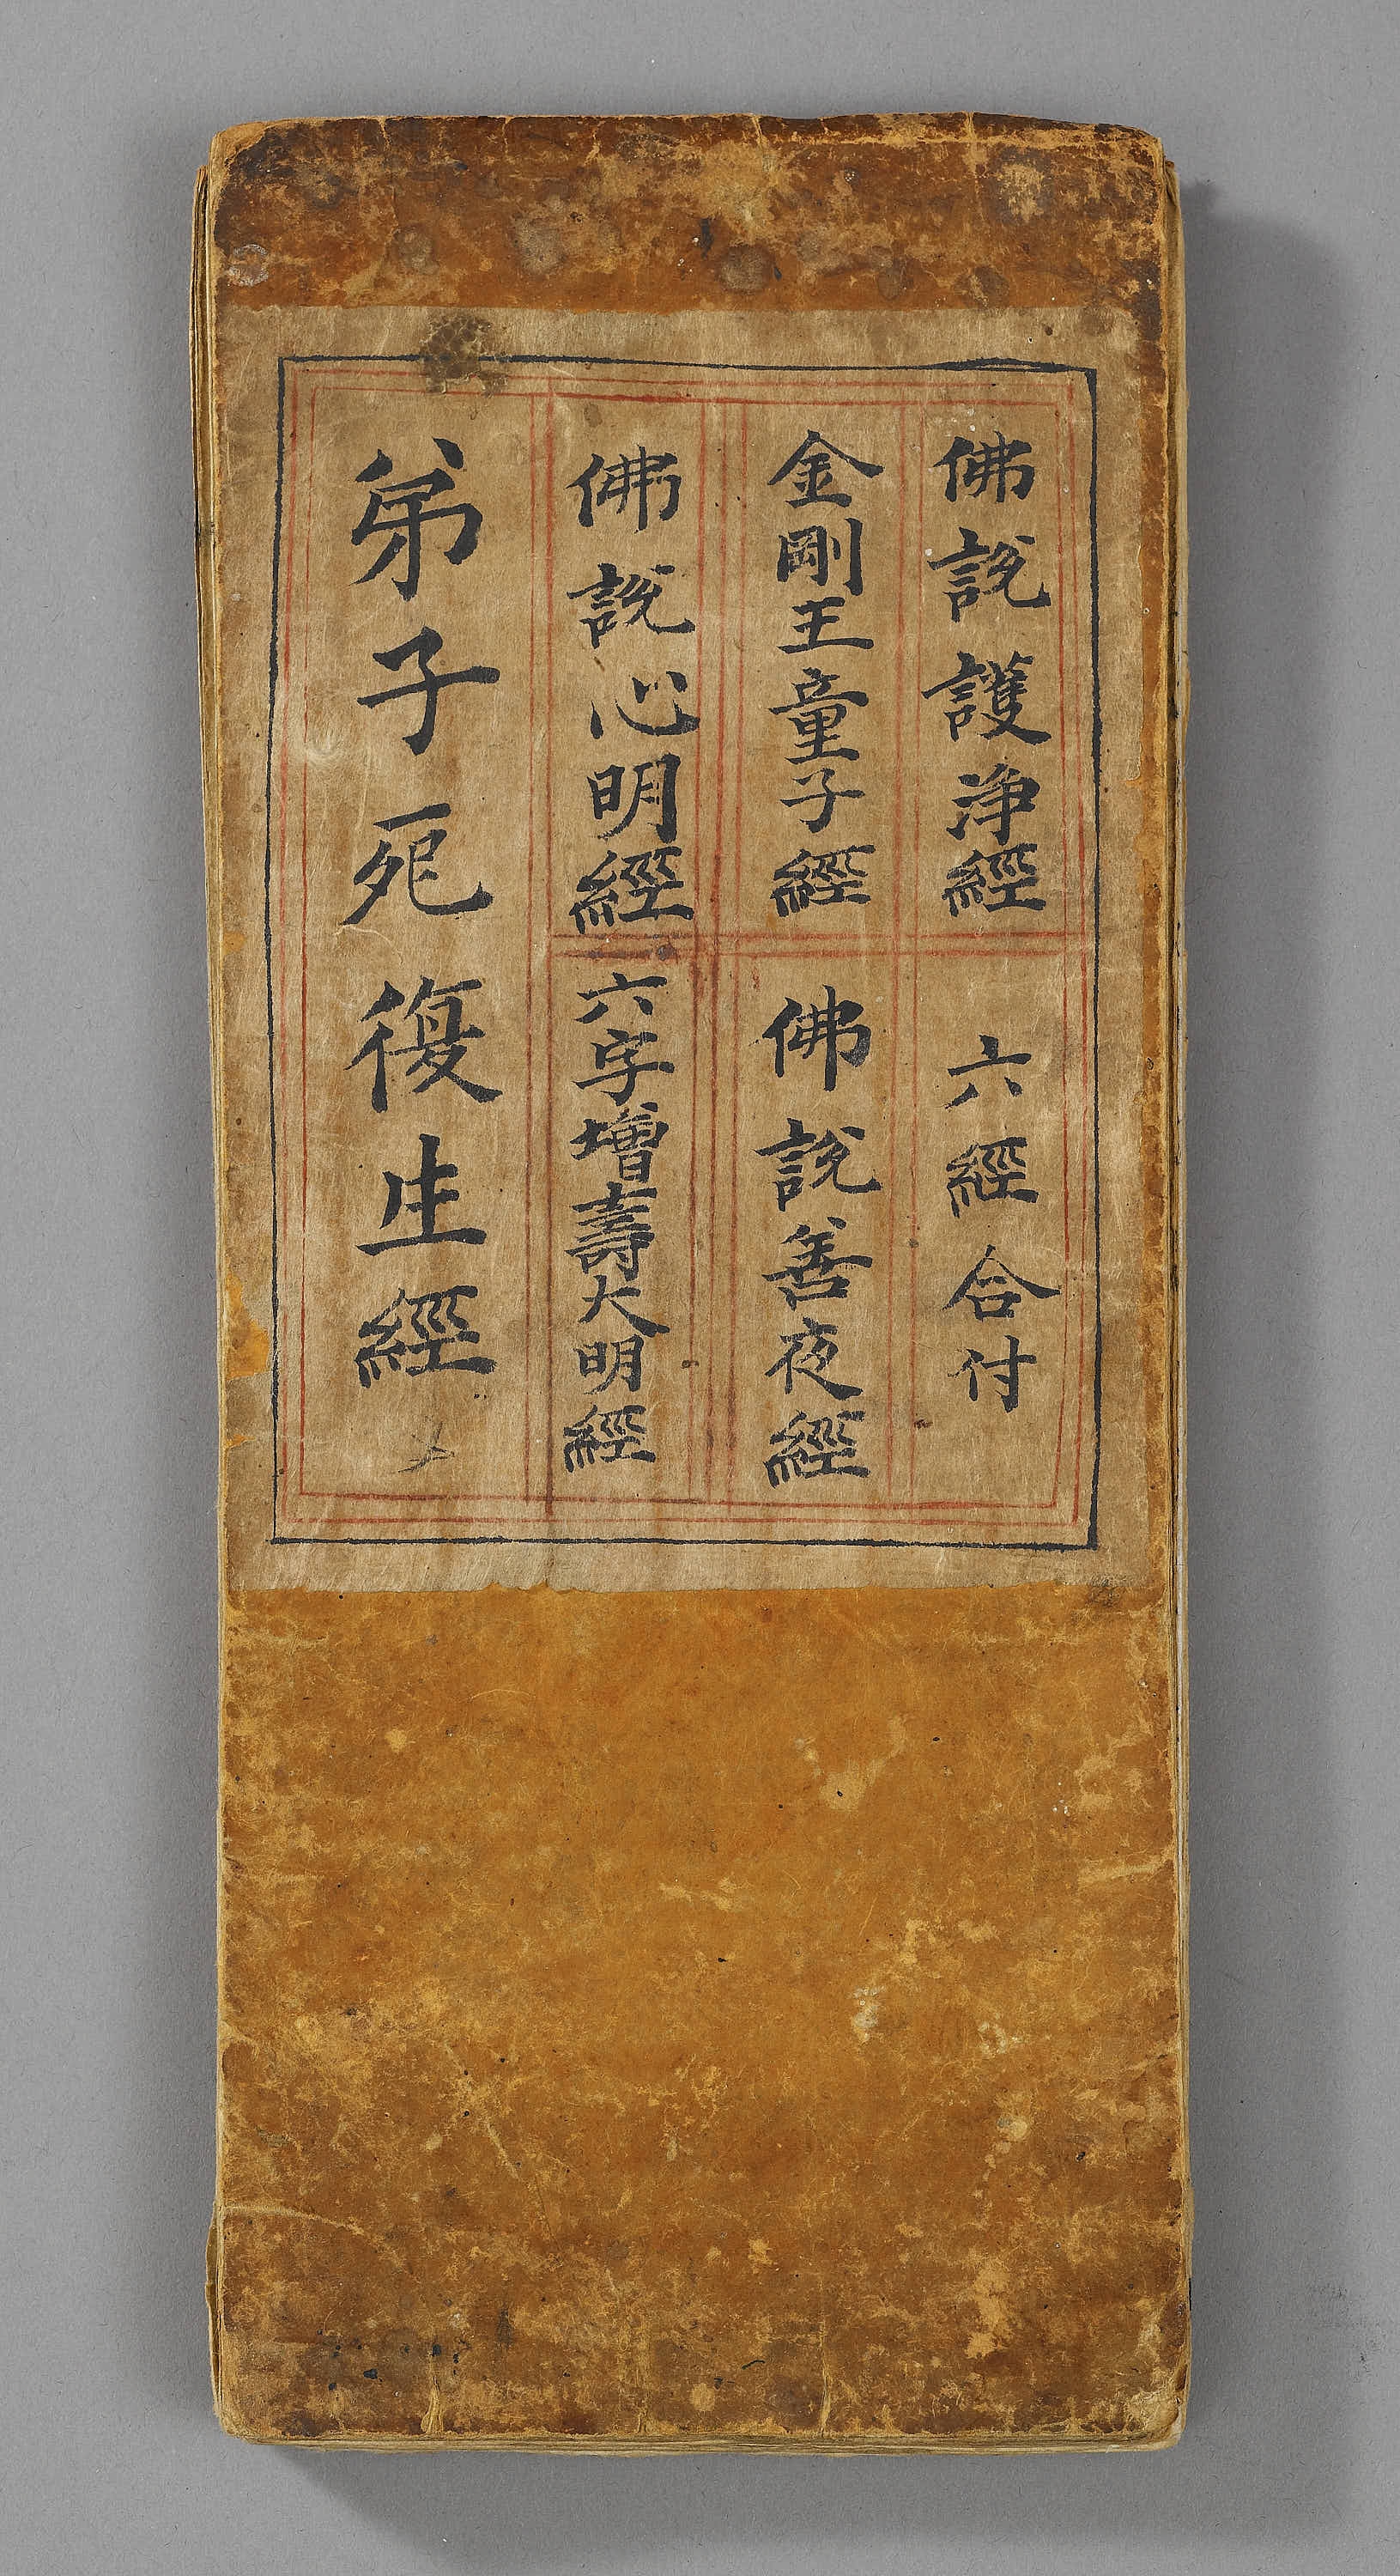 佛說護淨經
六經合付
金剛王童子經
佛說善夜經
佛說心明經
六字增壽大明經
弟子死復生經